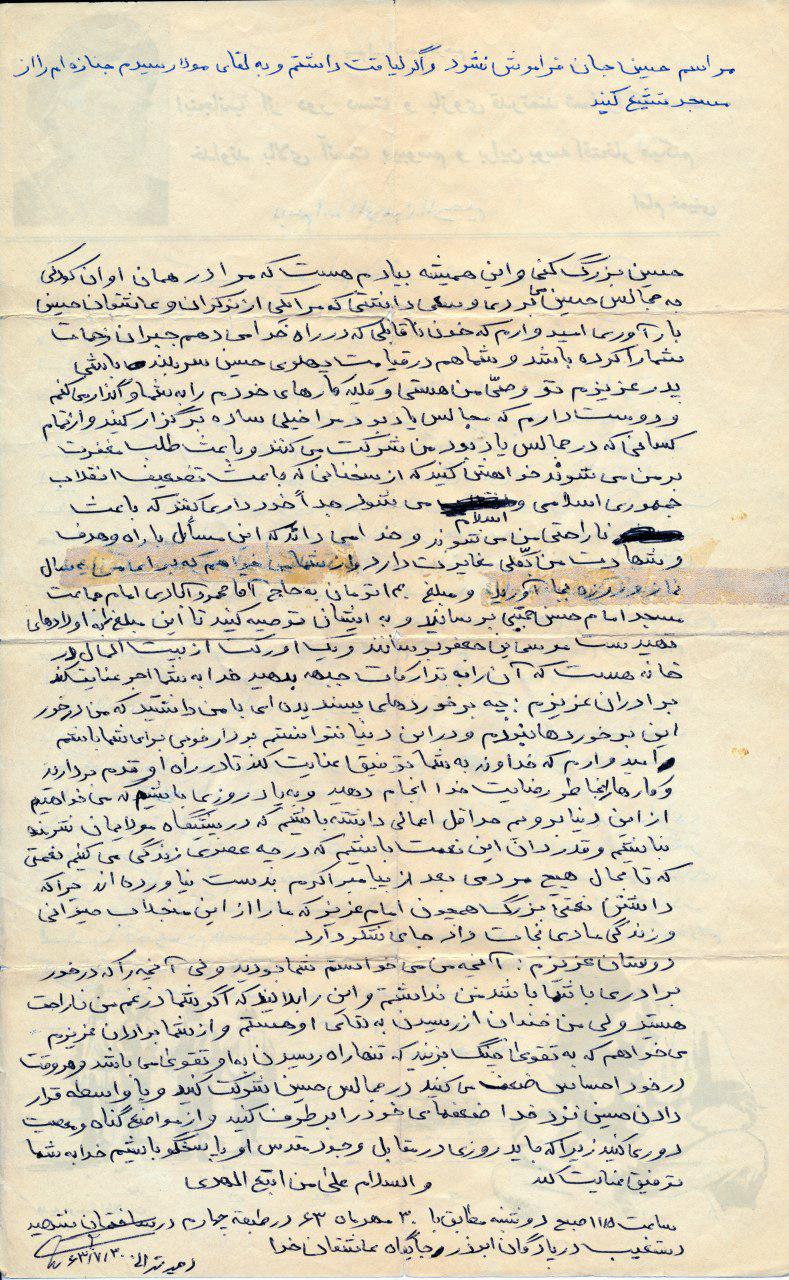 مراسم حسین جان فراموش نشود و اگر لیاقت داشتم و به لقای مولا رسیدم جنازه ام را از
مسجد تشییع کنید
امام خمینی
حسین بزرگ کنی و این همیشه بیادم هست که مرا در همان اوان کودکی
به مجالس حسین می بردی و سعی داشتی که مرا یکی از نوکران و عاشقان حسین
بار آوری امیدوارم که خون ناقابلی که در راه خدا می دهم جبران زحمات
شما را کرده باشد و شما هم در قیامت پهلوی حسین سربلند باشی
پدر عزیزم تو وصی من هستی و کلیه کارهای خودم را به شما واگذار می کنم
و دوست دارم که مجالس یادبود مرا خیلی ساده برگزار کنید و از تمام
کسانی که در مجالس یادبود من شرکت می کنند و باعث طلب مغفرت
بر من می شوند خواهش کنید که از سخنانی که باعث تضعیف انقلاب
جمهوری اسلامی و اسلام می شود جداً خودداری کنند که باعث
ناراحتی من می شوند و خدا می داند که این مسائل با راه و هدف
و شهادت من کلی مغایرت دارد از شما می خواهم که برایم یکسال
نماز و روزه بجا آورید و مبلغ تومان به حاج آقا محمود امام جماعت
مسجد امام حسن مجتبی برسانید و به ایشان توصیه کنید تا این مبلغ را به اولادهای
شهید موسی ابن جعفر برسانند و یک اورکت از بیت المال در
خانه هست که آن را به تدارکات جبهه بدهید خدا به شما اجر عنایت کند
برادران عزیزم: چه برخوردهای پسندیده ای با من داشتید که من درخور
این برخوردها نبودم و در این دنیا نتوانستم برادر خوبی برای شما باشم
و امیدوارم که خداوند به شما توفیق عنایت کند تا در راه او قدم بردارید
و کارها را بخاطر رضایت خدا انجام دهید و به یاد روزی باشیم که می خواهیم
از این دنیا برویم حداقل اعمالی داشته باشیم که در پیشگاه مولایمان شرمنده
نباشیم و قدردان این نعمت باشیم که در چه عصری زندگی می کنیم نعمتی
که تا بحال هیچ مردمی بعد از پیامبر اکرم بدست نیاورده اند چرا که
داشتن نعمتی بزرگ همچون امام عزیز که ما را از این منجلاب حیوانی
و زندگی مادی نجات داد جای تشکر دارد
دوستان عزیزم: آنچه من می خواستم شما بودید ولی آنچه را که درخور
برادری با شما باشد من نداشتم و این را بدانید که اگر شما در غم من ناراحت
هستید ولی من خندان از رسیدن به لقای او هستم و از شما برادران عزیزم
می خواهم که به تقوی چنگ بزنید که تنها راه رسیدن به او تقوی می باشد و هر وقت
در خود احساس ضعف می کنید در مجالس حسین شرکت کنید و با واسطه قرار
دادن حسین نزد خدا ضعفهای خود را برطرف کنید و از مواضع گناه و معصیت
دوری کنید زیرا که باید روزی در مقابل وجود مقدس او پاسخگو باشیم خدا به شما
توفیق عنایت کند والسلام علی من اتبع الهدی
ساعت صبح دوشنبه مطابق با ۳۰ مهرماه ۶۳ در طبقه چهارم در ساختمان شهید
دستغیب در پادگان ابوذر جایگاه عاشقان خدا
۶۳/۷/۳۰